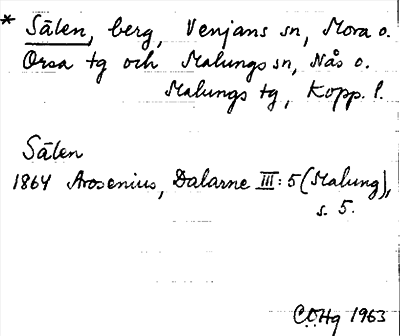 * Sälen, berg, Venjans sn, Mora o.
Orsa tg och Malungs sn, Nås o.
Malungs tg, Kopp. l.
Sälen
1864 Arosenius, Dalarne III: 5 (Malung),
s. 5.
COHg 1963